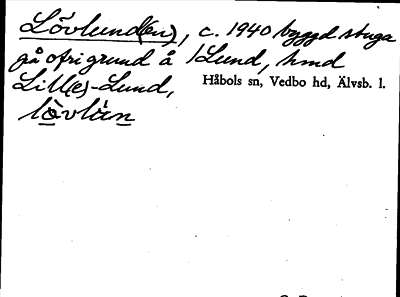 Lövlund(en), c. 1940 byggd stuga
på ofri grund å /Lund, hmd
Lill(e)-Lund,
Håbols sn, Vedbo hd, Älvsb. l.